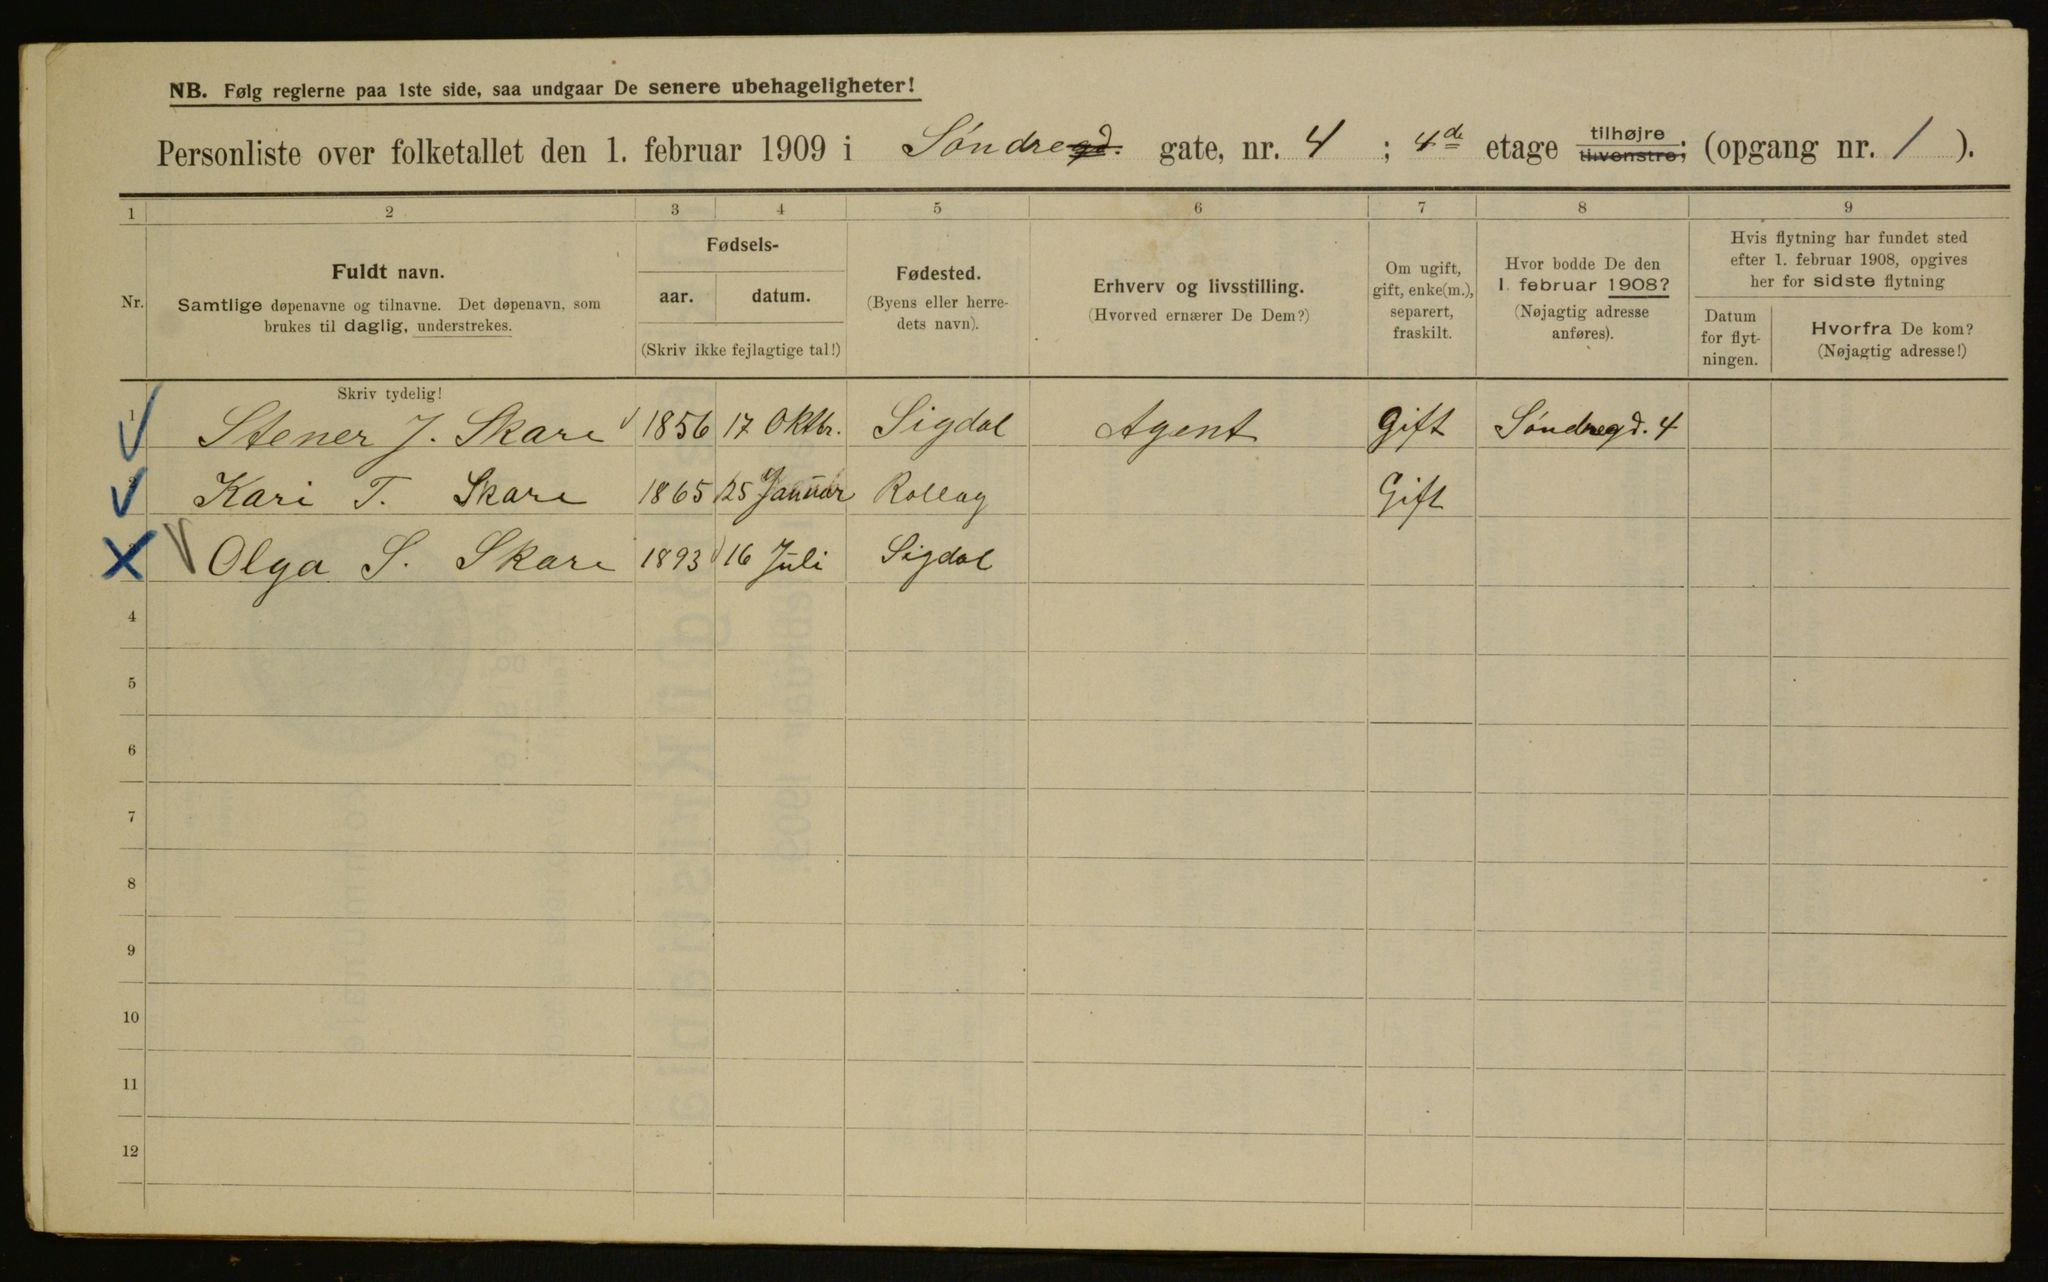 NB. Følg reglerne paa 1ste side, saa undgaar De senere ubehageligheter!
Personliste over folketallet den 1. februar 1909 i Søndregd. gate, nr. 4 ; 4de etage tilhøjre tilvenstre; (opgang nr. 1 ).
1 2 3 4 5 6 7 8 9
Nr.
Fuldt navn.
Samtlige døpenavne og tilnavne. Det døpenavn, som
brukes til daglig, understrekes.
Fødsels-
aar. datum.
(Skriv ikke fejlagtige tal!)
Fødested.
(Byens eller herre-
dets navn).
Erhverv og livsstilling.
(Hvorved ernærer De Dem?)
Om ugift,
gift, enke(m.),
separert,
fraskilt.
Hvor bodde De den
1. februar 1908?
(Nøjagtig adresse
anføres).
Hvis flytning har fundet sted
efter 1. februar 1908, opgives
her for sidste flytning
Datum
for flyt-
ningen.
Hvorfra De kom?
(Nøjagtig adresse!)
Skriv tydelig!
1 Stener J. Skare 1856 17 Oktbr. Sigdal Agent Gift Søndregd. 4
Kari T. Skare 1865 25 Januar Rollag Gift
Olga S. Skare 1893 16 Juli Sigdal
4
5
6
7
8
9
10
11
12